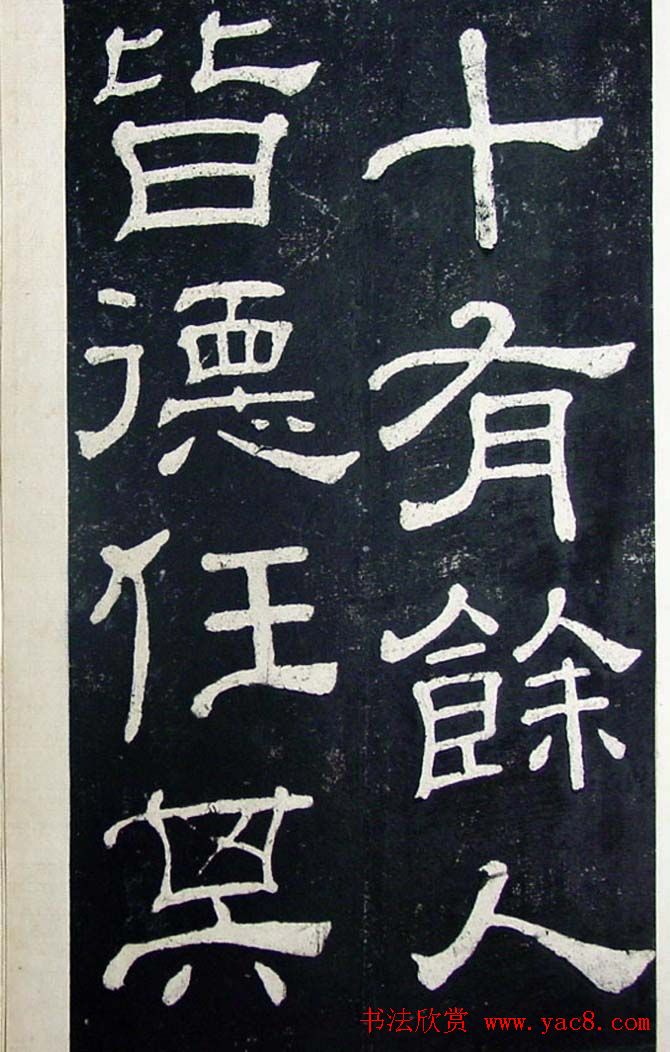 十有餘人
皆德任其
书法欣赏 www.yac8.com